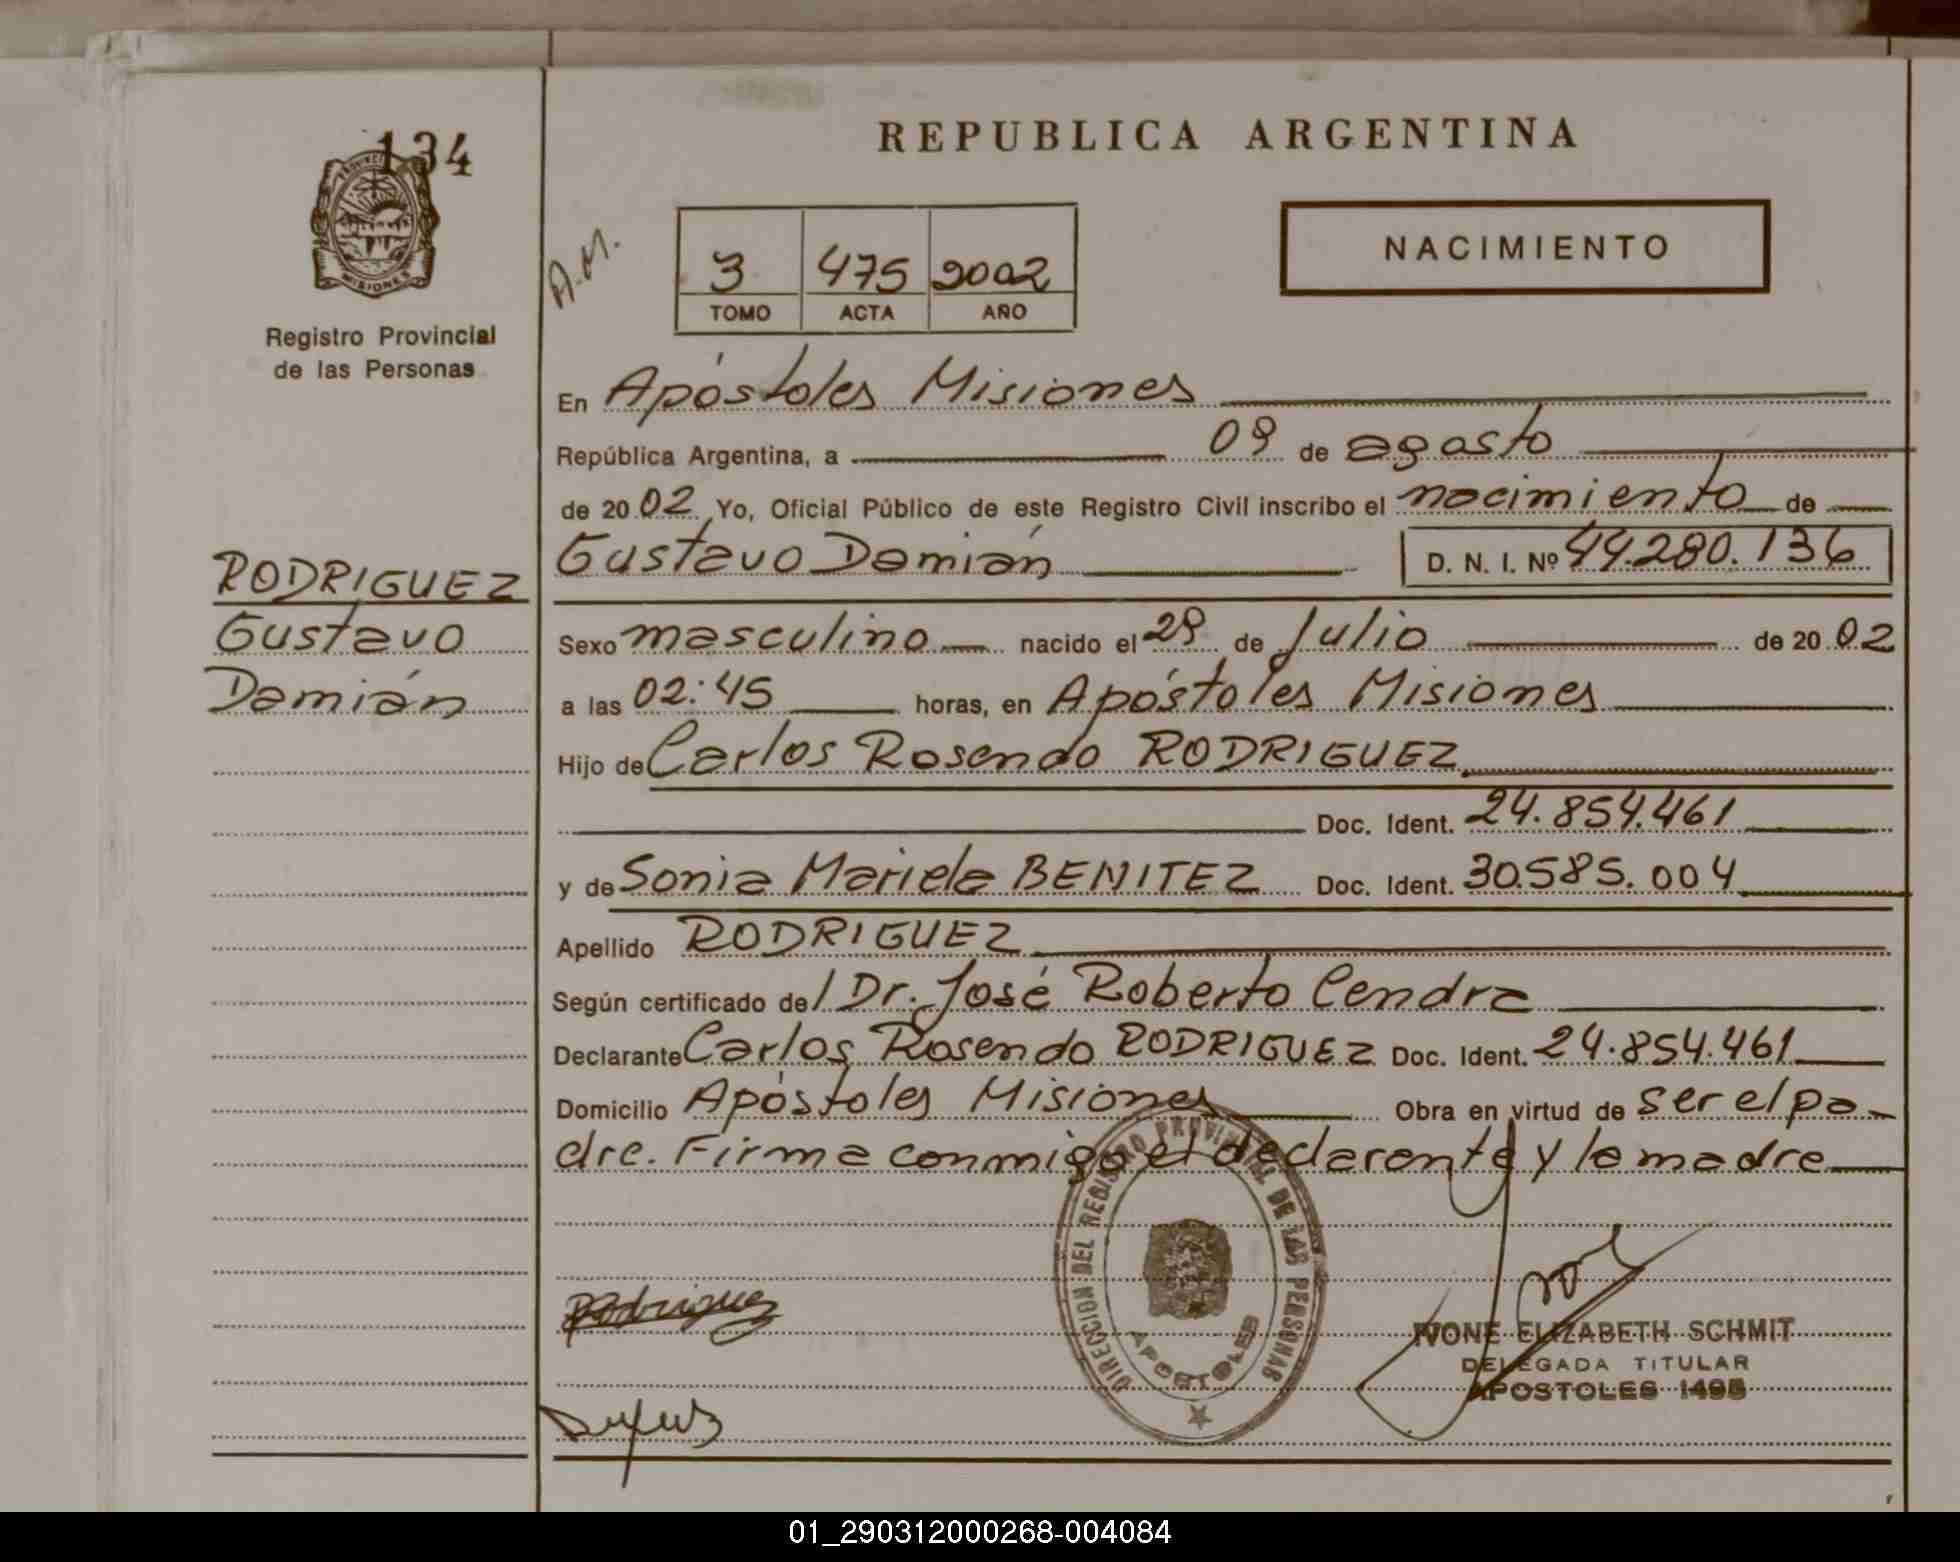 134
PROVINCIA
MISIONES
Registro Provincial
de las Personas
RODRIGUEZ
Gustavo
Damián
REPUBLICA ARGENTINA
A.M.
3 475 2002
TOMO ACTA AÑO
NACIMIENTO
En Apóstoles Misiones
República Argentina, a 09 de agosto
de 20 02 Yo, Oficial Público de este Registro Civil inscribo el nacimiento de
Gustavo Damián D. N. I. Nº 44.280.136
Sexo masculino nacido el 29 de Julio de 20 02
a las 02:45 horas, en Apóstoles Misiones
Hijo de Carlos Rosendo RODRIGUEZ
Doc. Ident. 24.854.461
y de Sonia Mariela BENITEZ Doc. Ident. 30.585.004
Apellido RODRIGUEZ
Según certificado del Dr. José Roberto Cendra
Declarante Carlos Rosendo RODRIGUEZ Doc. Ident. 24.854.461
Domicilio Apóstoles Misiones Obra en virtud de ser el pa-
dre. Firma conmigo el declarante y la madre
DIRECCION DEL REGISTRO PROVINCIAL DE LAS PERSONAS
APOSTOLES
Rodriguez
IVONE ELIZABETH SCHMIT
DELEGADA TITULAR
APOSTOLES 1495
01_290312000268-004084